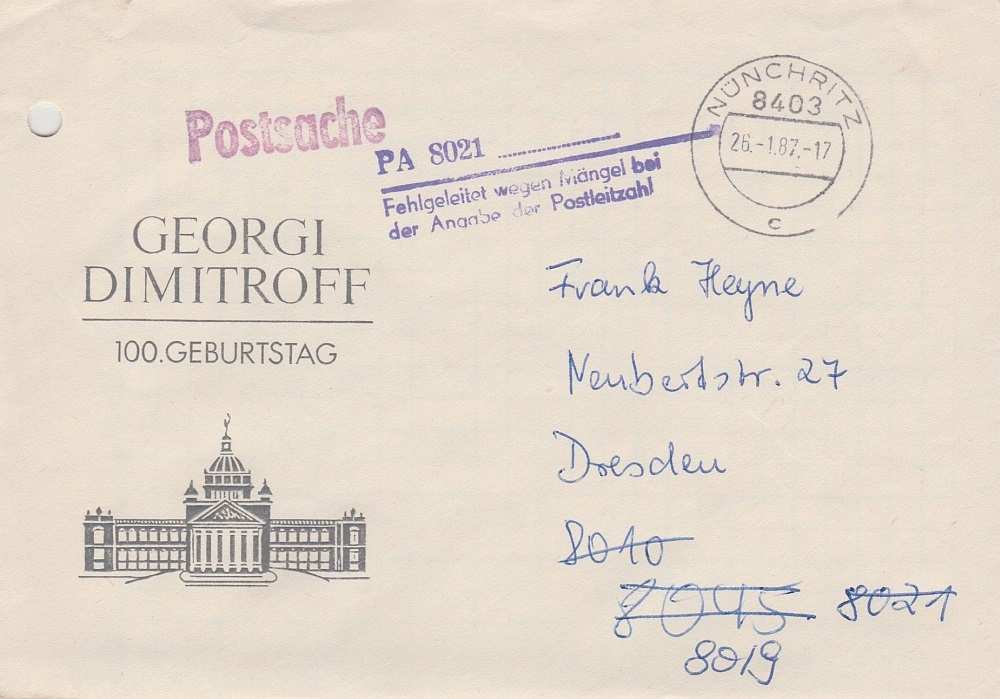 Postsache
PA 8021
Fehlgeleitet wegen Mängel bei
der Angabe der Postleitzahl
NÜNCHRITZ
8403
26.-1.87.-17
c
GEORGI
DIMITROFF
100.GEBURTSTAG
Frank Heyne
Neubertstr. 27
Dresden
8010
8045 8021
8019